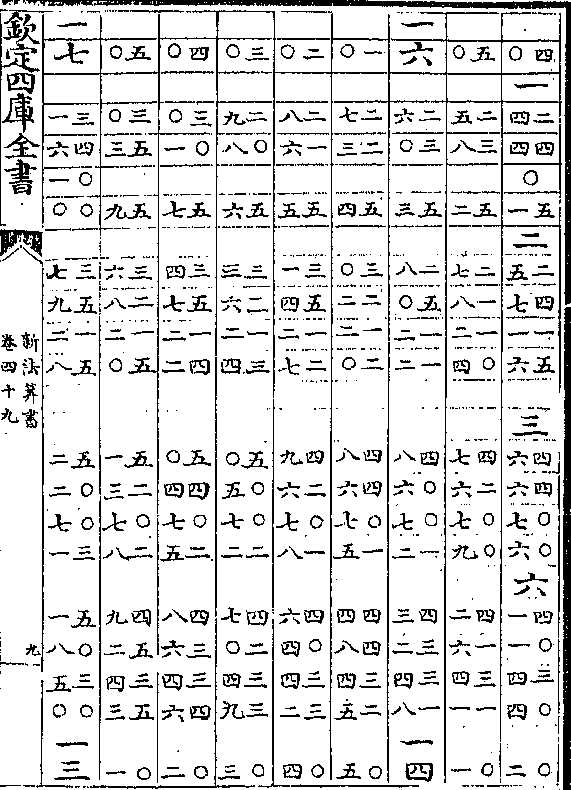 四〇 一 二四 四四 〇 五一 二 二五 四七 一一 五六 三 四六 四六 〇七 〇六 六 四一 〇一 三四 〇四 〇二
五〇 二五 三八 五二 二七 一八 一二 〇四 四七 二六 〇七 〇九 四二 一六 三四 一一 〇一
一六 二六 三〇 五三 二八 五〇 一二 一二 四八 〇六 〇七 一二 四三 三二 三四 一八 一四
一〇 二七 二三 五四 三〇 二二 一二 二〇 四八 四六 〇七 一五 四四 四八 三四 二五 〇五
二〇 二八 一六 五五 三一 五四 一二 二七 四九 二六 〇七 一八 四六 〇四 三四 三二 〇四
三〇 二九 〇八 五六 三三 二六 一二 三四 五〇 〇五 〇七 二二 四七 二〇 三四 三九 〇三
四〇 三〇 〇一 五七 三四 五七 一二 四二 五〇 四四 〇七 二五 四八 三六 三四 四六 〇二
五〇 三〇 五三 五九 三六 二八 一二 五〇 五一 二三 〇七 二八 四九 五二 三四 五三 〇一
一七 三一 四六 〇一 〇〇 三七 五九 一二 五八 五二 〇二 〇七 三一 五一 〇八 三五 〇〇 一三
欽定四庫全書
新法算書
卷四十九
九